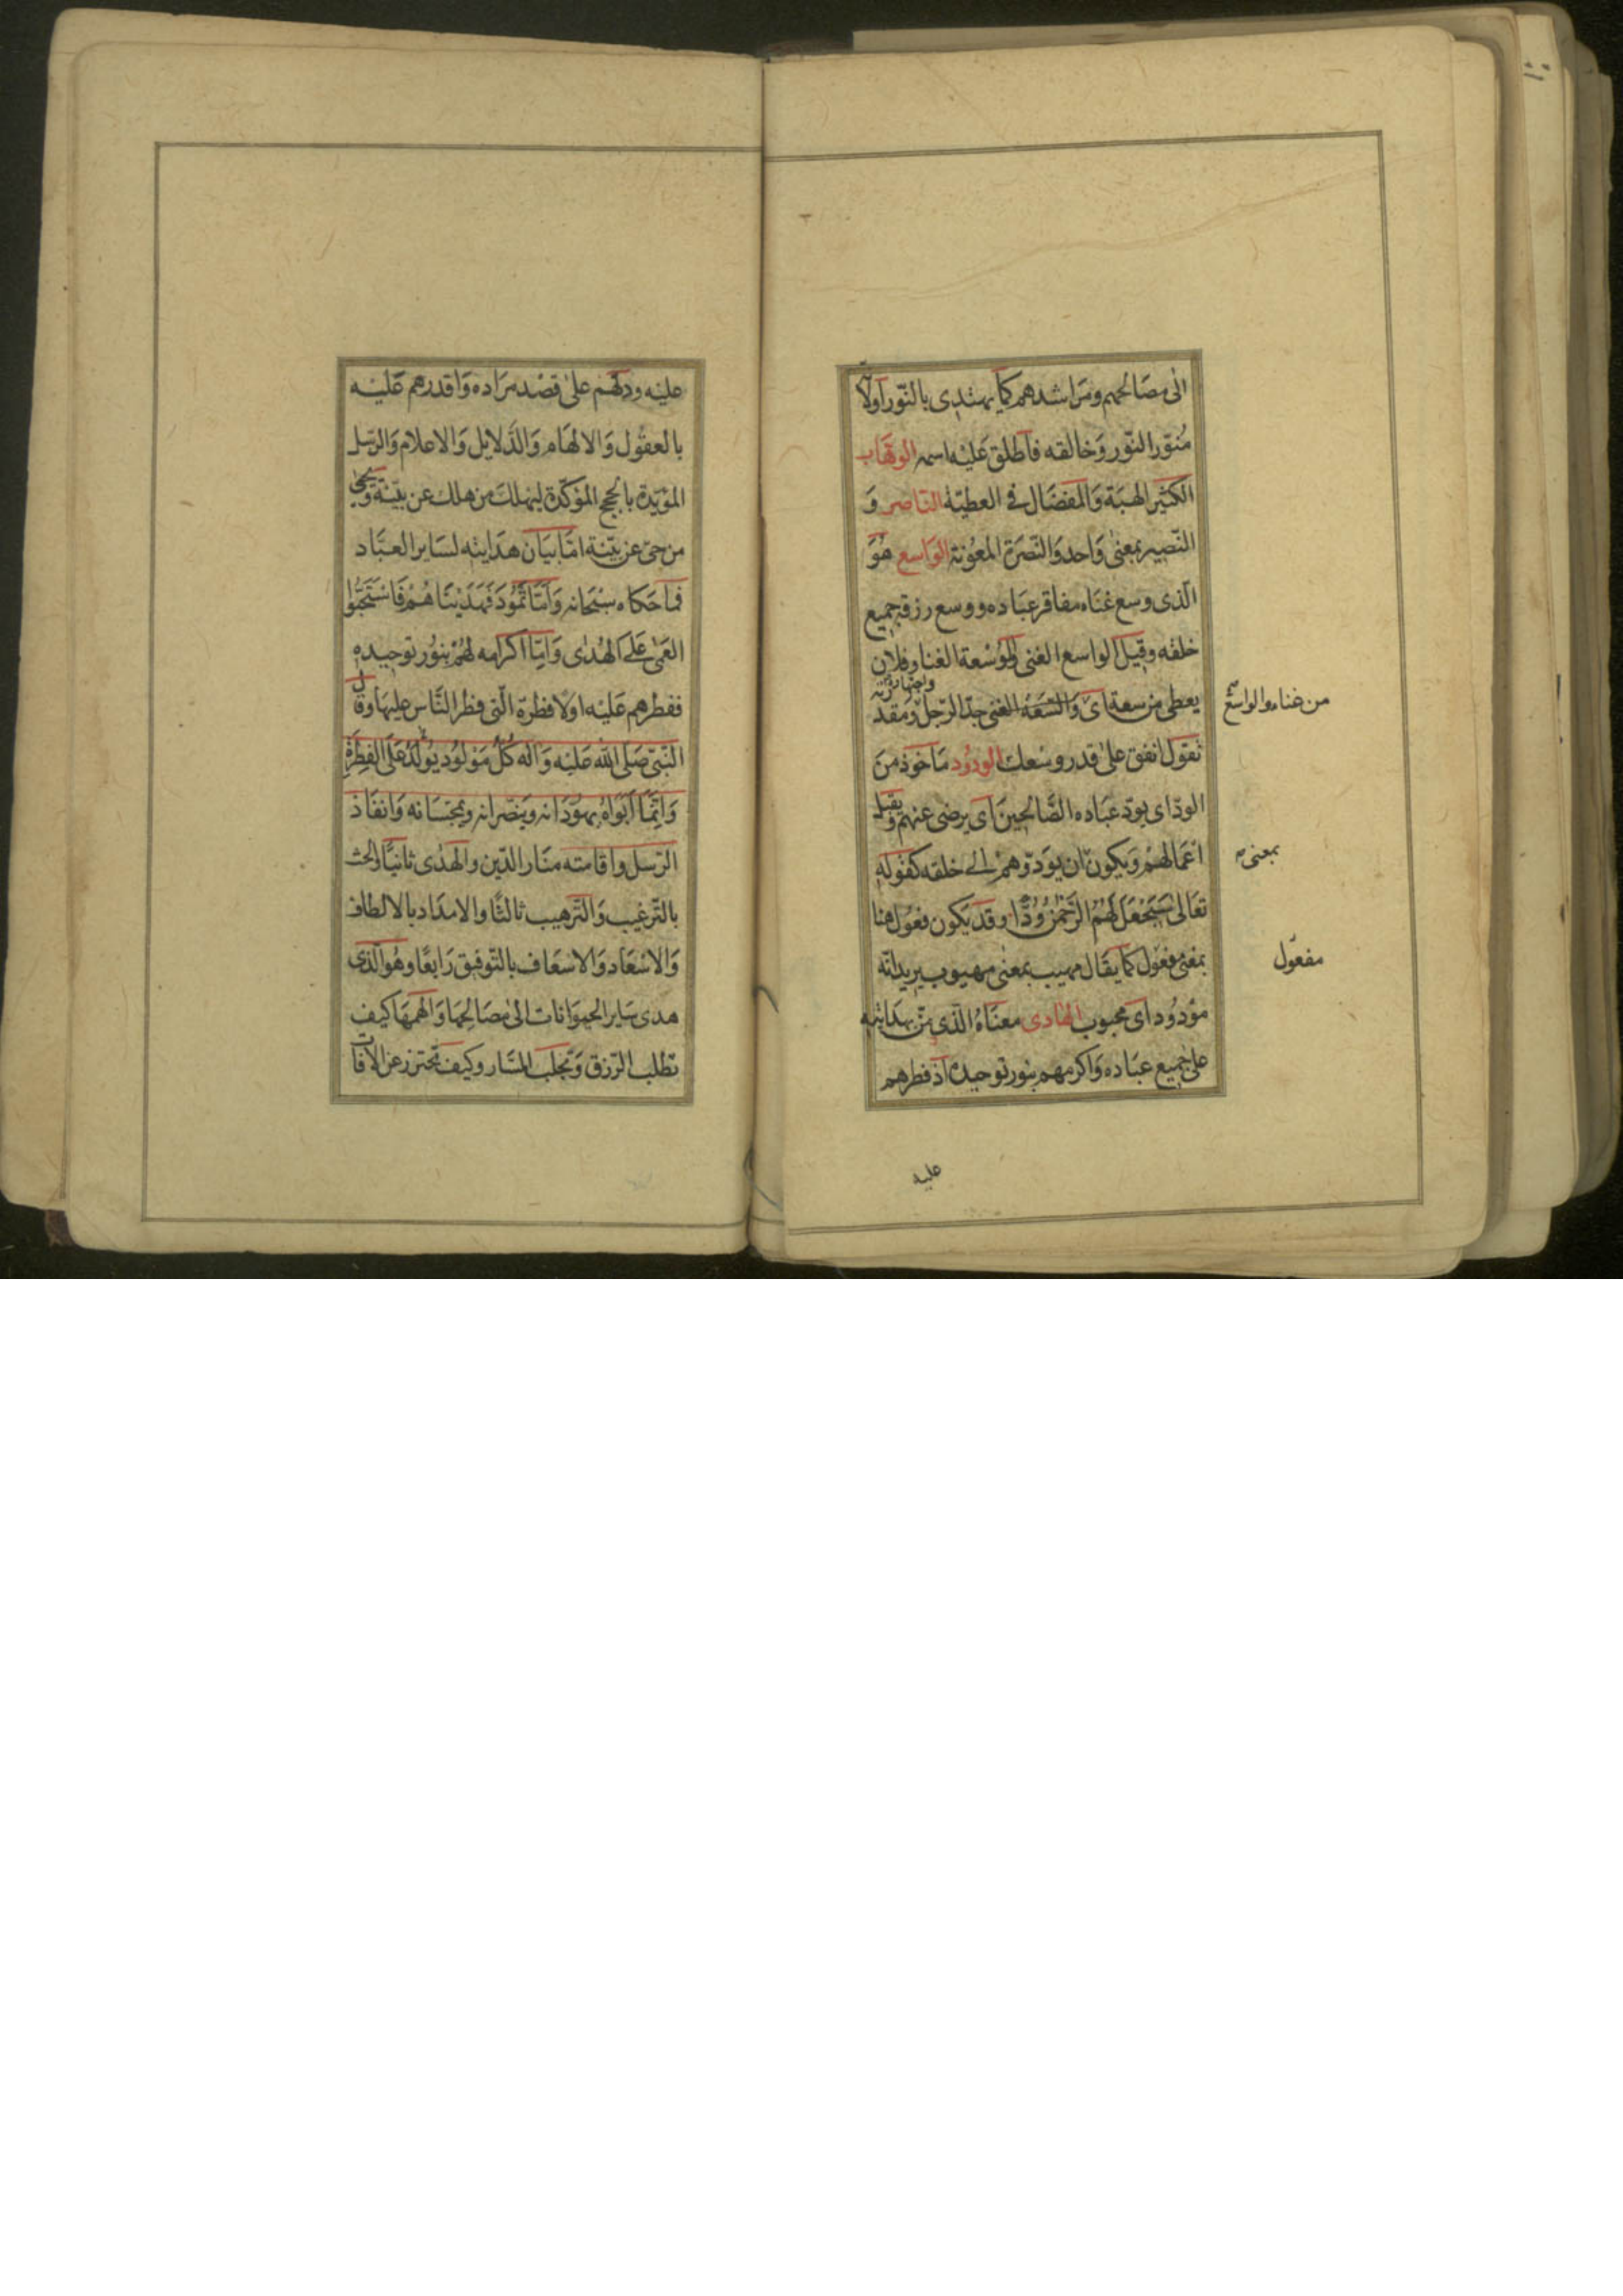 الى مصَالحهم ومَراشدهم كما يهتدى بالنّور اولا
مُنوّر النّور وَخالقه فاطلق عَليْه اسمه الوهّاب
الكثير الهبَة وَالمفضَال فى العطيّة الناصر وَ
النّصير بمعنىً وَاحد وَالنّصرَة المعُونة الوَاسع هُوَ
الّذى وسع غنَاه مفاقر عبَاده ووسع رزقه جميع
خلقه وقيل الواسع الغنى والوُسْعة الغنا وفلان
يعطى من سعة اى من غناه والواسع
وَالسّعَة الغنى جدّ الرّجل ومقد
تقول انفق على قدر وسْعك الودُود مَاخوذ منَ
الودّ اى يودّ عبَاده الصَّالحينَ اى يرضى عنهم ويقبل
اعمَالهمْ وَيكون بمعنى ان يوَدّوهمْ الى خلقه كقوله
تعَالى سَيَجْعَلُ لَهُمُ الرَّحْمٰنُ وُدًّا وقد يَكون فعُول هنا
بمعْنى مفعُول كما يقَال مهيب بمعْنى مهيوب يريد انّه
مفعُول
موْدُود اى محبوب الهَادى معنَاهُ الّذى منّ بهدَايته
على جميع عبَاده وَاكرمهم بنور توحيده اذ فطرهم
عليه
عليْه ودلّهم على قصْد مرَاده وَاقدرهم عَليْه
بالعقُول وَالالهَام وَالدّلايل وَالاعلام وَالرّسل
المؤيّدة بالحجج المؤكّدة ليهْلك من هلك عن بيّنة ويَحيى
من حىّ عن بيّنة امّا بيَان هدَايته لسَاير العبَاد
فما حَكاه سبْحَانه وَاَمّا ثَمُودَ فَهَدَيْنَاهُمْ فَاسْتَحَبُّوا
العَمٰى عَلَى الهُدٰى وَامّا اكرَامه لهُمْ بنُور توحيده
ففطرهم عَليْه اولًا فطرَة الّتى فطر النَّاس عليهَا وقال
النّبىّ صَلى اللّه عَليْه وَاله كُلّ مَوْلُود يُولَدُ عَلَى الفِطْرَةِ
وَانّمَا ابَوَاهُ يهوّدَانه وَينصّرانه ويمجّسَانه وَانفَاذ
الرّسل واقامته منَار الدّين وَالهدٰى ثانيًا والحث
بالتّرغيب وَالتّرهيب ثالثًا والامدَاد بالالطاف
وَالاسْعَاد وَالاسْعَاف بالتّوفيق رَابعًا وهُو الّذى
هدى سَاير الحيوَانات الى مصَالحهَا وَالهمهَا كيف
تطلب الرّزق وَتجلب المسَار وكيف تحترز عن الافات